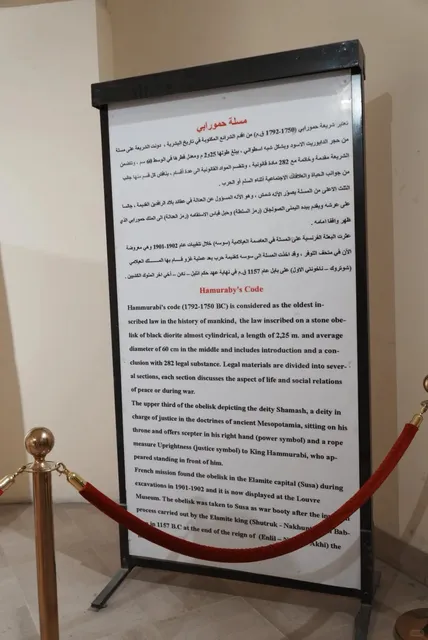 مسلة حمورابي
تعتبر شريعة حمورابي (1750-1792 ق.م) من اقدم الشرائع المكتوبة في تاريخ البشرية ، دونت الشريعة على مسلة
من حجر الدايوريت الاسود وبشكل شبه اسطواني ، يبلغ طولها 2،25 م ومعدل قطرها في الوسط 60 سم وتتضمن
الشريعة مقدمة وخاتمة مع 282 مادة قانونية ، وتنقسم المواد القانونية الى عدة أقسام ، يناقش كل قسم منها جانب
من جوانب الحياة والعلاقات الاجتماعية أثناء السلم أو الحرب .
الثلث الاعلى من المسلة يصور الإله شمش ، وهو الآله المسؤول عن العدالة في عقائد بلاد الرافدين القديمة ، جالسا
على عرشه ويقدم بيده اليمنى الصولجان (رمز السلطة) وحبل قياس الاستقامه (رمز العدالة) الى الملك حمورابي الذي
ظهر واقفا امامه .
عثرت البعثة الفرنسية على المسلة في العاصمة العيلامية (سوسه) خلال تنقيبات عام 1901-1902 وهي معروضة
الآن في متحف اللوفر ، وقد اخذت المسلة الى سوسه كغنيمة حرب بعد عملية غزو قام بها الملك العيلامي
(شوتروك – ناخونتي الاول) على بابل عام 1157 ق.م في نهاية عهد حكم انليل – نادن – أخي اخر الملوك الكشيين .
Hamuraby's Code
Hammurabi's code (1792-1750 BC) is considered as the oldest in-
scribed law in the history of mankind, the law inscribed on a stone obe-
lisk of black diorite almost cylindrical, a length of 2,25 m. and average
diameter of 60 cm in the middle and includes introduction and a con-
clusion with 282 legal substance. Legal materials are divided into sever-
al sections, each section discusses the aspect of life and social relations
of peace or during war.
The upper third of the obelisk depicting the deity Shamash, a deity in
charge of justice in the doctrines of ancient Mesopotamia, sitting on his
throne and offers scepter in his right hand (power symbol) and a rope
measure Uprightness (justice symbol) to King Hammurabi, who ap-
peared standing in front of him.
French mission found the obelisk in the Elamite capital (Susa) during
excavations in 1901-1902 and it is now displayed at the Louvre
Museum. The obelisk was taken to Susa as war booty after the
process carried out by the Elamite king (Shutruk - Nakhun Bab-
in 1157 B.C at the end of the reign of (Enlil – khi) the